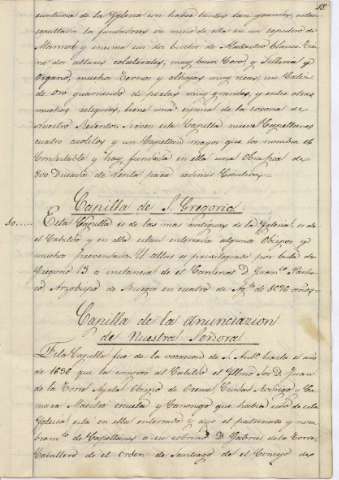 18
suntuosa de la Yglesia
sepultada la fundadora en medio de ella en un sepulcro de
Marmol y encima un
dos altares colaterales, muy buen Coro y Silleria y
organo, muchos Ternos y alhajas muy ricas, un Caliz
de oro guarnecido de perlas muy grandes, y entre otras
muchas reliquias, tiene una espina de la corona de
nuestro Redentor. Sirven esta Capilla nueve Capellanes
cuatro acolitos y un Capellan mayor que los nombra el
Condestable y hay fundada en ella una Obra pia de
300 Ducados de renta para redimir Cautivos.
Capilla de S. Gregorio
Esta Capilla es de las mas antiguas de la Yglesia, es de
el Cabildo y en ella estan enterrados algunos Obispos y
muchos Prevendados. El Altar es privilegiado por bula de
Gregorio 13 a instancia de el Cardenal D. Fran.co Pacheco
Arzobispo de Burgos en cuatro de
Capilla de la Anunciazion
de Nuestra Señora
Esta Capilla fue de la vocacion de S. Ant.o hasta el año
de 1636 que la compro del Cabildo el Yllmo Sor D. Juan
de la Torre Ayala Obispo de Orense Ciudad Rodrigo y Zamora
Maestre escuela y Canonigo que habia sido de esta
Yglesia esta en ella enterrado y dejo el patronato y nombram.to
de Capellanes a su sobrino D. Gabriel de la Torre
Caballero de el orden de Santiago de el Consejo de